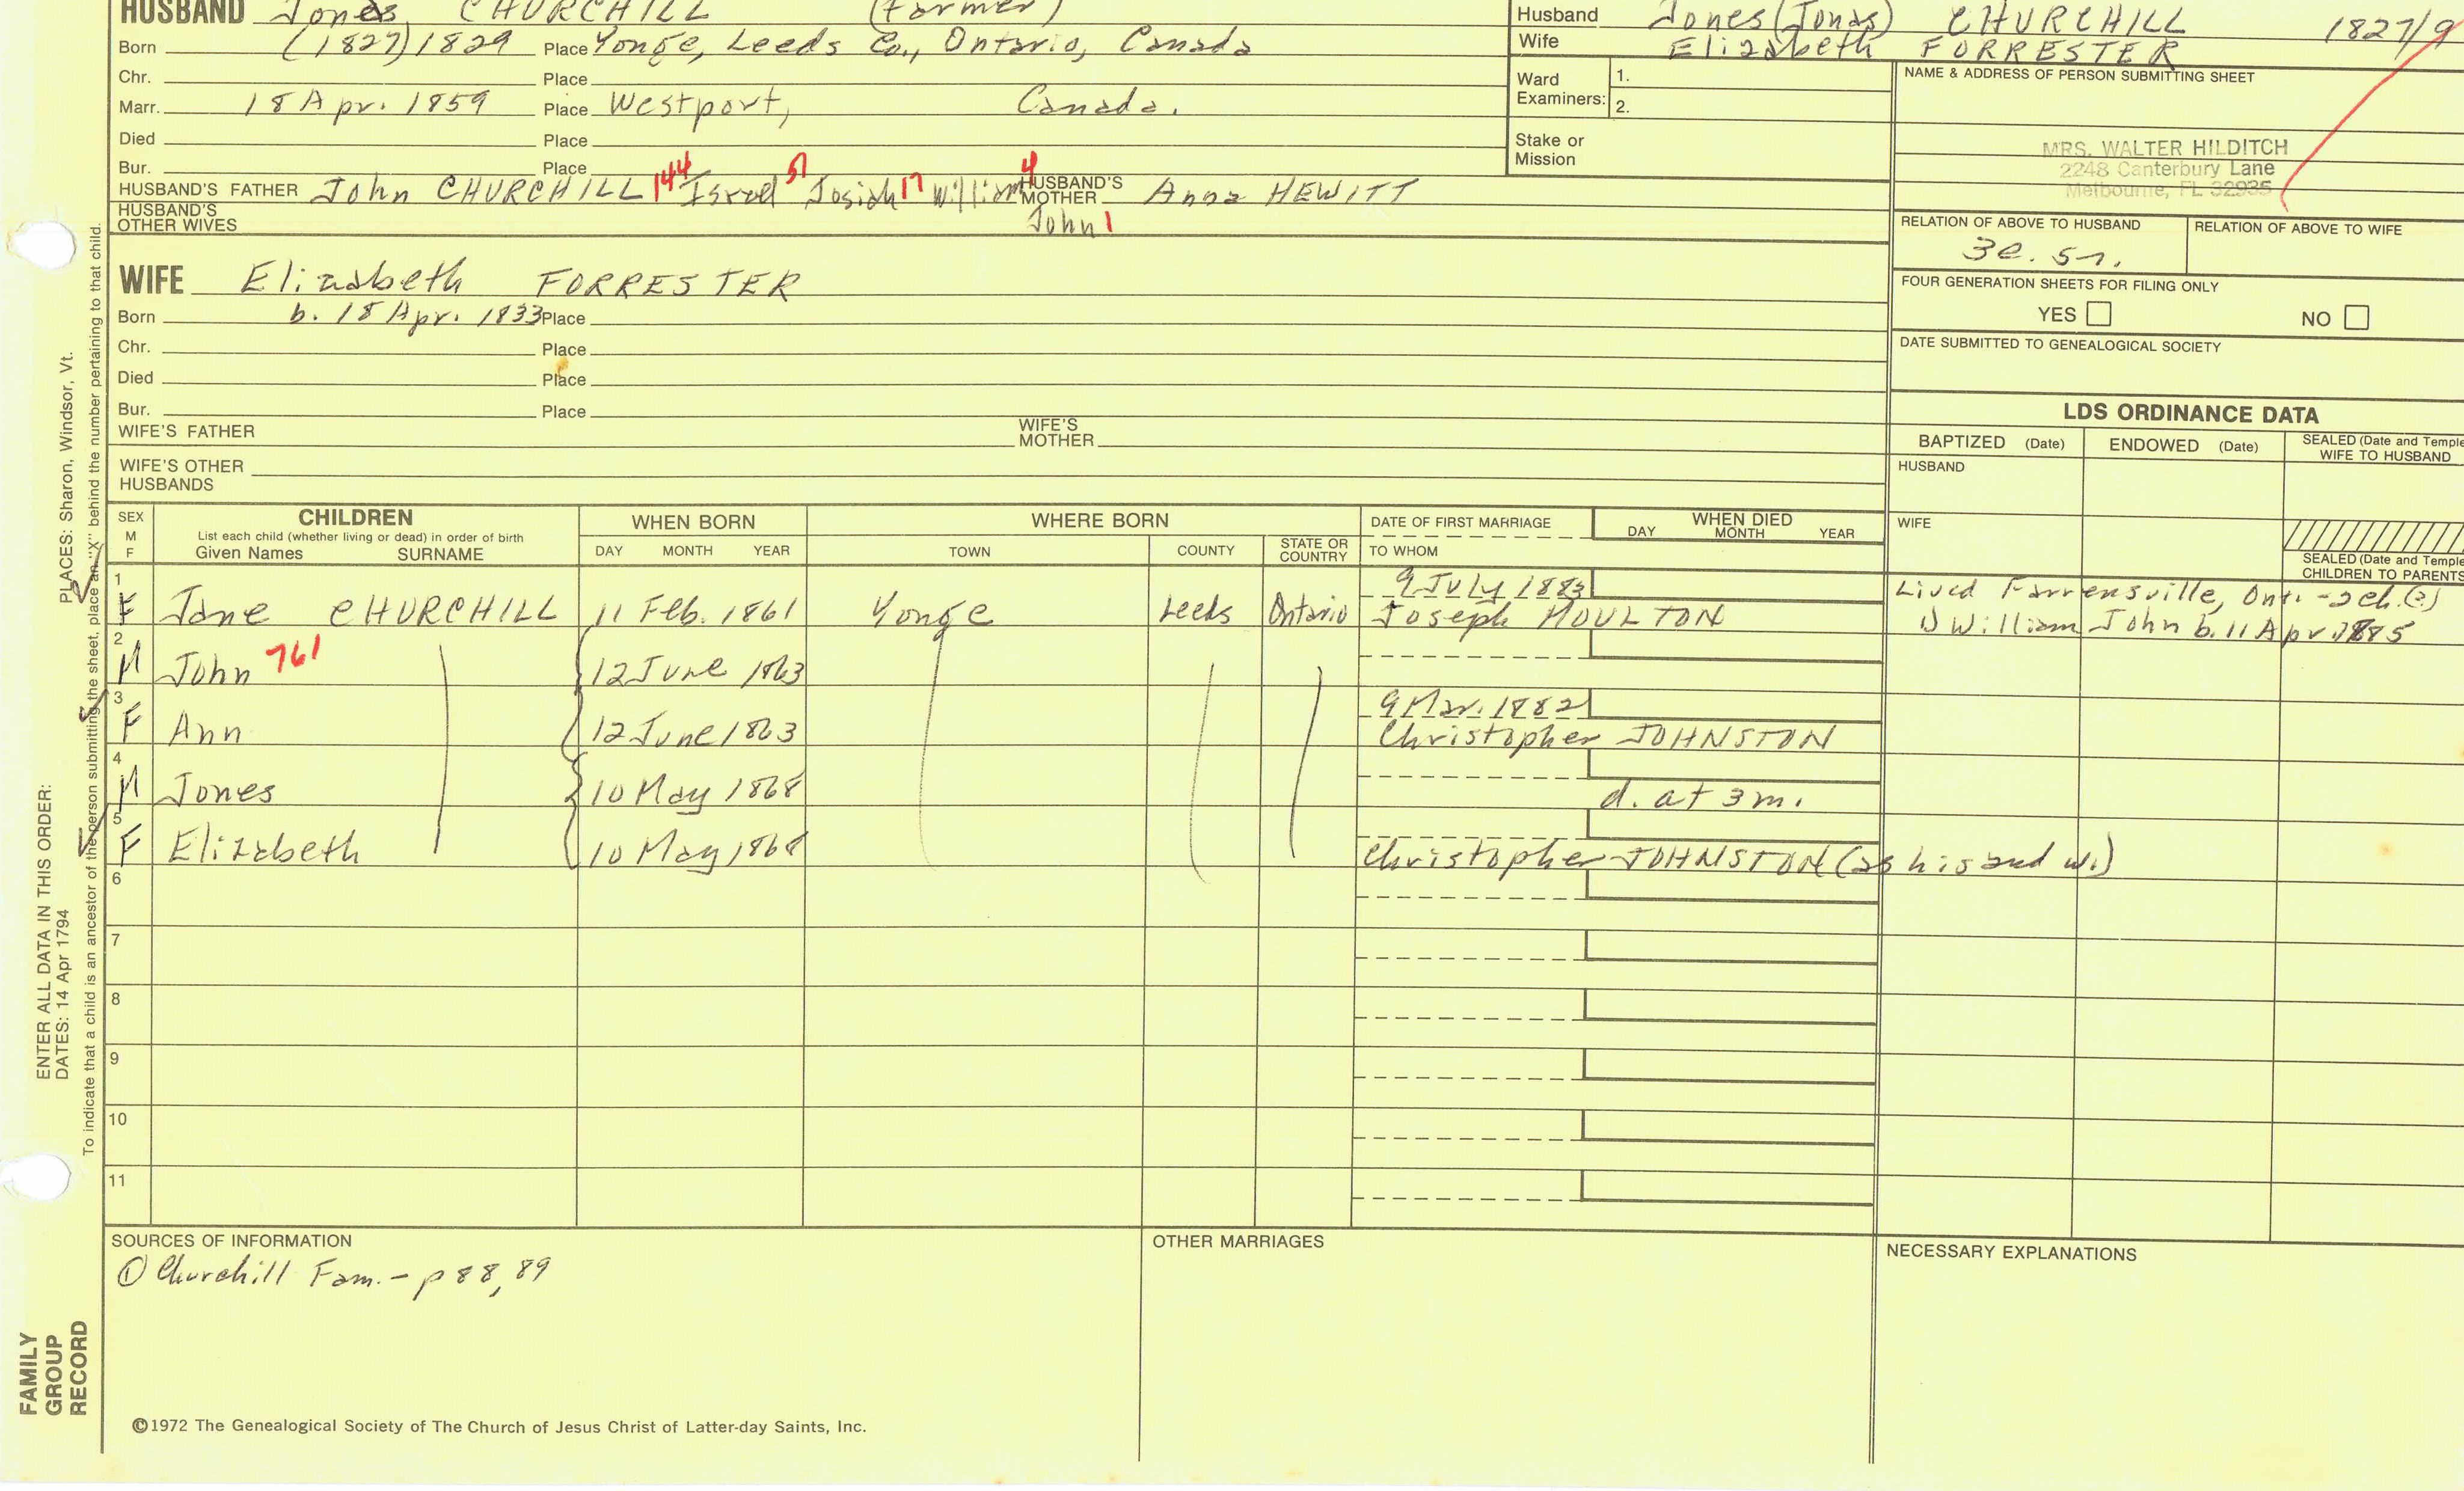 HUSBAND Jones CHURCHILL (farmer)
Born (1827) 1829 Place Yonge, Leeds Co., Ontario, Canada
Chr. Place
Marr. 18 Apr. 1859 Place Westport, Canada.
Died Place
Bur. Place
HUSBAND'S FATHER John CHURCHILL 144 Israel 51 Josiah 17 William 4 John 1 HUSBAND'S MOTHER Anna HEWITT
HUSBAND'S OTHER WIVES
Husband Jones (Jonas) CHURCHILL 1827/9
Wife Elizabeth FORRESTER
Ward Examiners: 1.
2.
Stake or Mission
NAME & ADDRESS OF PERSON SUBMITTING SHEET
MRS. WALTER HILDITCH
2248 Canterbury Lane
Melbourne, FL 32935
RELATION OF ABOVE TO HUSBAND RELATION OF ABOVE TO WIFE
3c. 5r.
FOUR GENERATION SHEETS FOR FILING ONLY
YES NO
DATE SUBMITTED TO GENEALOGICAL SOCIETY
WIFE Elizabeth FORRESTER
Born b. 18 Apr. 1833 Place
Chr. Place
Died Place
Bur. Place
WIFE'S FATHER WIFE'S MOTHER
WIFE'S OTHER HUSBANDS
LDS ORDINANCE DATA
BAPTIZED (Date) ENDOWED (Date) SEALED (Date and Temple
WIFE TO HUSBAND
HUSBAND
WIFE
SEALED (Date and Temple
CHILDREN TO PARENTS
SEX M F
CHILDREN
List each child (whether living or dead) in order of birth
Given Names SURNAME
WHEN BORN
DAY MONTH YEAR
WHERE BORN
TOWN COUNTY STATE OR COUNTRY
DATE OF FIRST MARRIAGE
TO WHOM
WHEN DIED
DAY MONTH YEAR
1 F Jane CHURCHILL 11 Feb. 1861 Yonge Leeds Ontario 9 July 1883 Joseph MOULTON
Lived Farrensville, Ont. - 2 ch.(?)
1) William John b. 11 Apr. 1885
2 M John 761 12 June 1863
3 F Ann 12 June 1863 9 Mar. 1882 Christopher JOHNSTON
4 M Jones 10 May 1868 d. at 3 m.
5 F Elizabeth 10 May 1868 Christopher JOHNSTON (as his 2nd w.)
6
7
8
9
10
11
SOURCES OF INFORMATION
① Churchill Fam. - p 88, 89
OTHER MARRIAGES
NECESSARY EXPLANATIONS
©1972 The Genealogical Society of The Church of Jesus Christ of Latter-day Saints, Inc.
FAMILY GROUP RECORD
ENTER ALL DATA IN THIS ORDER:
DATES: 14 Apr 1794
PLACES: Sharon, Windsor, Vt.
To indicate that a child is an ancestor of the person submitting the sheet, place an "X" behind the number pertaining to that child.